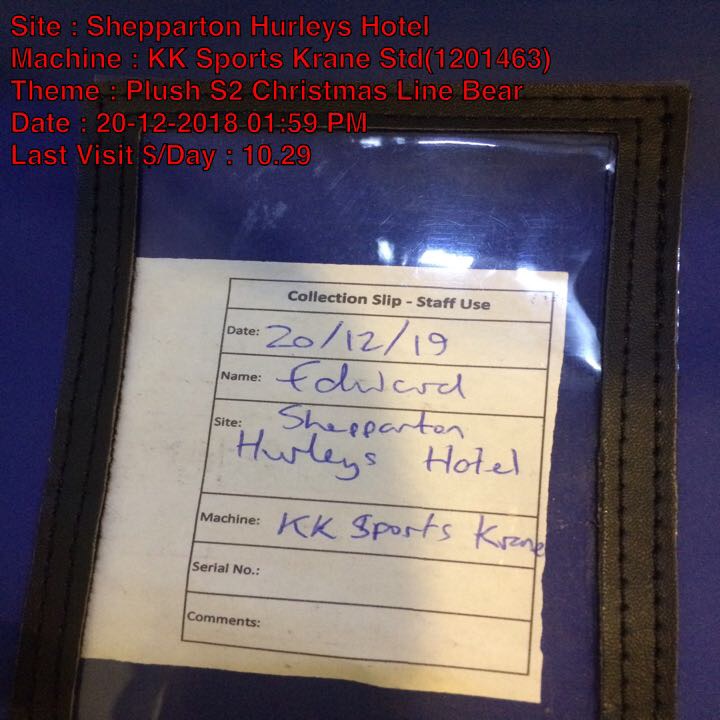 Site : Shepparton Hurleys Hotel
Machine : KK Sports Krane Std(1201463)
Theme : Plush S2 Christmas Line Bear
Date : 20-12-2018 01:59 PM
Last Visit $/Day : 10.29
Collection Slip - Staff Use
Date: 20/12/19
Name: Edward
Site: Shepparton
Hurleys Hotel
Machine: KK Sports Krane
Serial No.:
Comments: